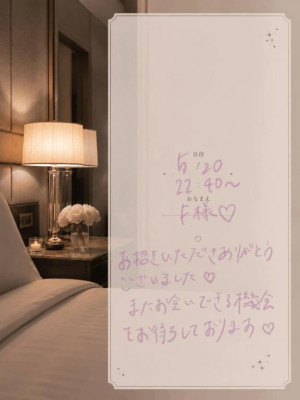 日付
5/20
22:40〜
おなまえ
F様♡
♡
お招きいただきありがとう
ございました♡
またお会いできる機会
をお待ちしております♡